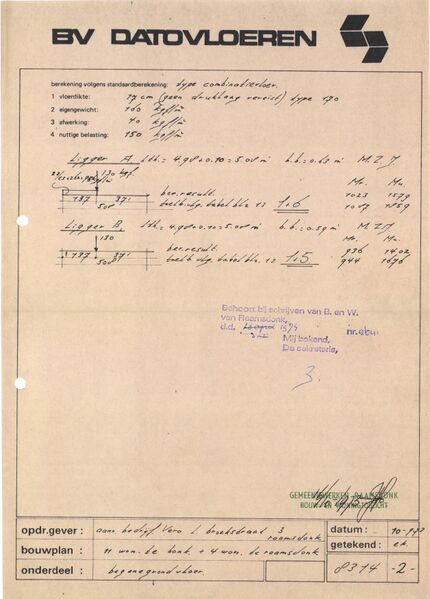 BV DATOVLOEREN
berekening volgens standaardberekening: type combinatievloer.
1 vloerdikte: 17 cm (geen druklaag vereist) type 170
2 eigengewicht: kgf/m²
3 afwerking: 40 kgf/m²
4 nuttige belasting: 150 kgf/m²
Ligger A Lth. = 4.98 + 0.10 = 5.08 m M.Z.M
130 kgf. Mr. Mu.
ber. result. 1023 1579
toelb. vlg. tabel blz. 12 16 1083 1859
137 371
508
Ligger B, Lth = 4.98 + 0.10 = 5.08 m b.b. = 0.59 m M.ZM
130 Mr. Mu.
ber. result. 936 1402
137 371 toelb. vlg. tabel blz. 12 15. 944 1676
508
Behoort bij schrijven van B. en W.
van Raamsdonk,
d.d. nr.
Mij bekend,
De sekretaris,
3.
GEMEENTEWERKEN RAAMSDONK
BOUW- EN WONINGTOEZICHT
opdr.gever : aann. bedrijf Vero L. broekstraat 3 raamsdonk
datum : 10-
getekend :
bouwplan : 11 won. de bonk. + 4 won. te raamsdonk
onderdeel : beganegrondvloer. 8314 -2-